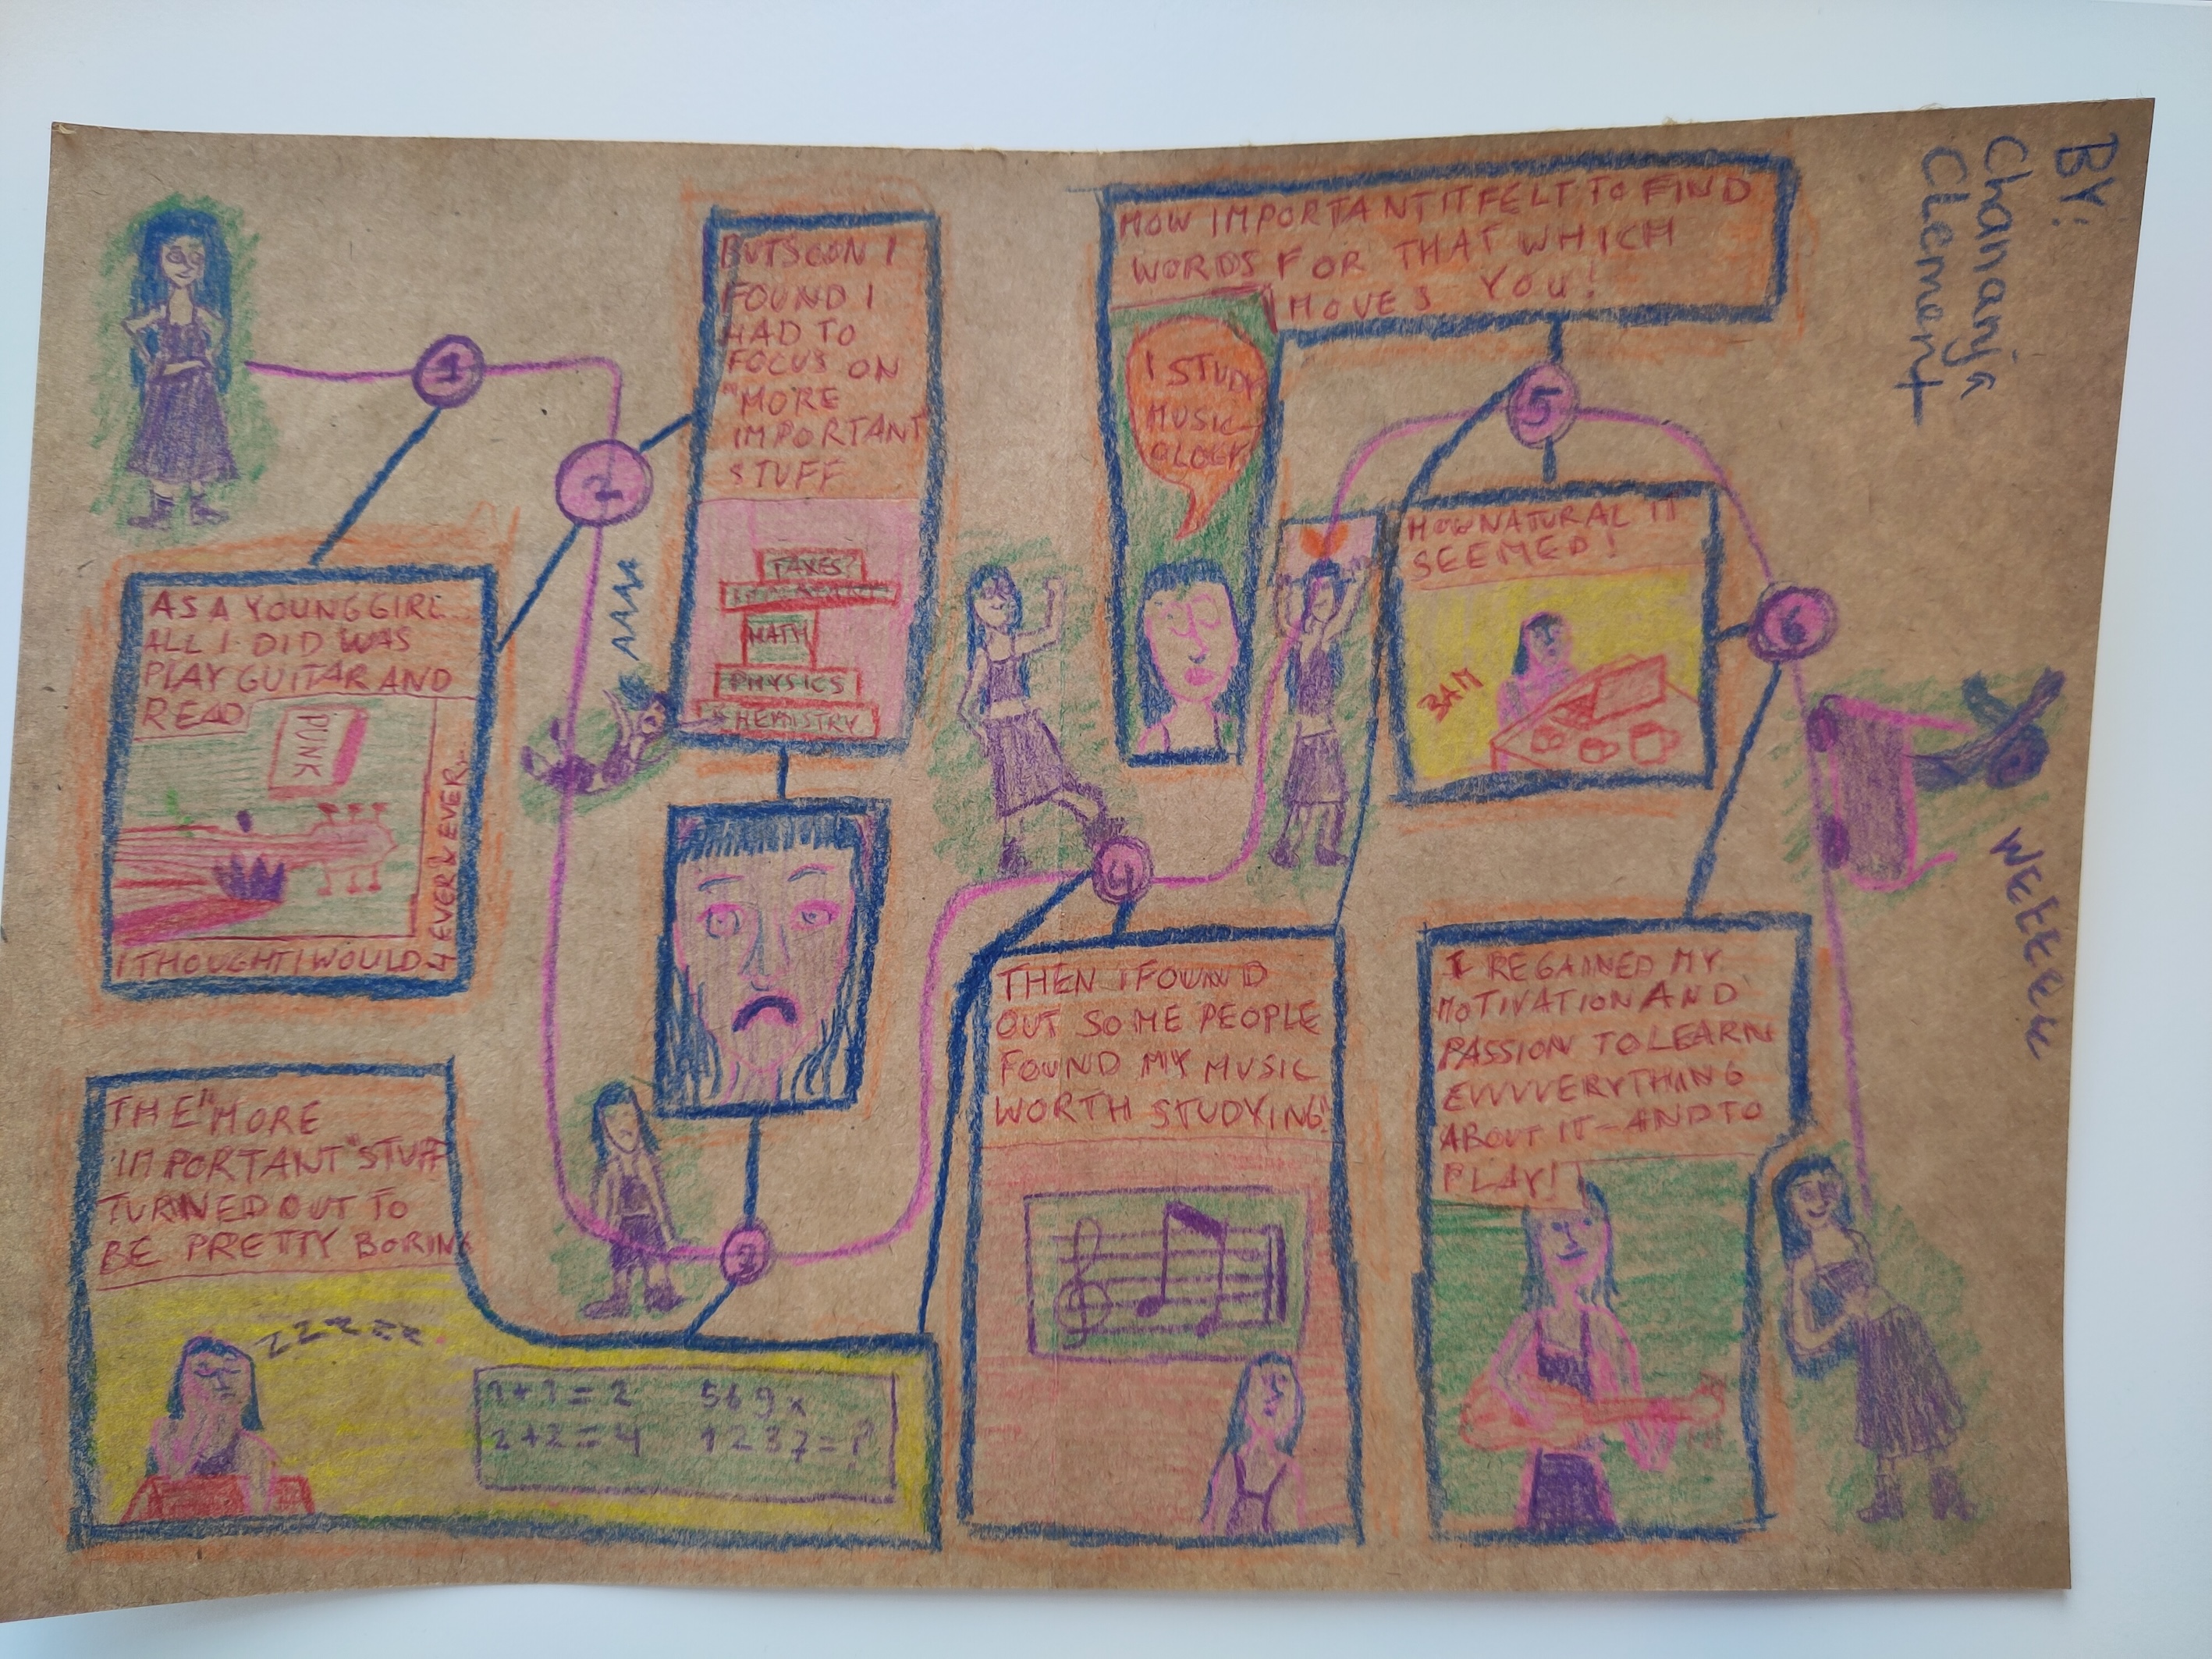 1
AS A YOUNG GIRL
ALL I DID WAS
PLAY GUITAR AND
READ
PUNK
I THOUGHT I WOULD
4 EVER & EVER...
2
BUT SOON I
FOUND I
HAD TO
FOCUS ON
"MORE
IMPORTANT
STUFF
TAXES?
MATH
PHYSICS
CHEMISTRY
AAAA
3
THE "MORE
IMPORTANT" STUFF
TURNED OUT TO
BE PRETTY BORING
ZZZZZZ
1+1=2 569x
2+2=4 1237=?
4
THEN I FOUND
OUT SOME PEOPLE
FOUND MY MUSIC
WORTH STUDYING!
5
HOW IMPORTANT IT FELT TO FIND
WORDS FOR THAT WHICH
MOVES YOU!
I STUDY
MUSIC-
HOW NATURAL IT
SEEMED!
BAM
6
I REGAINED MY
MOTIVATION AND
PASSION TO LEARN
EVVVVERYTHING
ABOUT IT - AND TO
PLAY!
WEEEEEE
BY:
Chananja
Clement